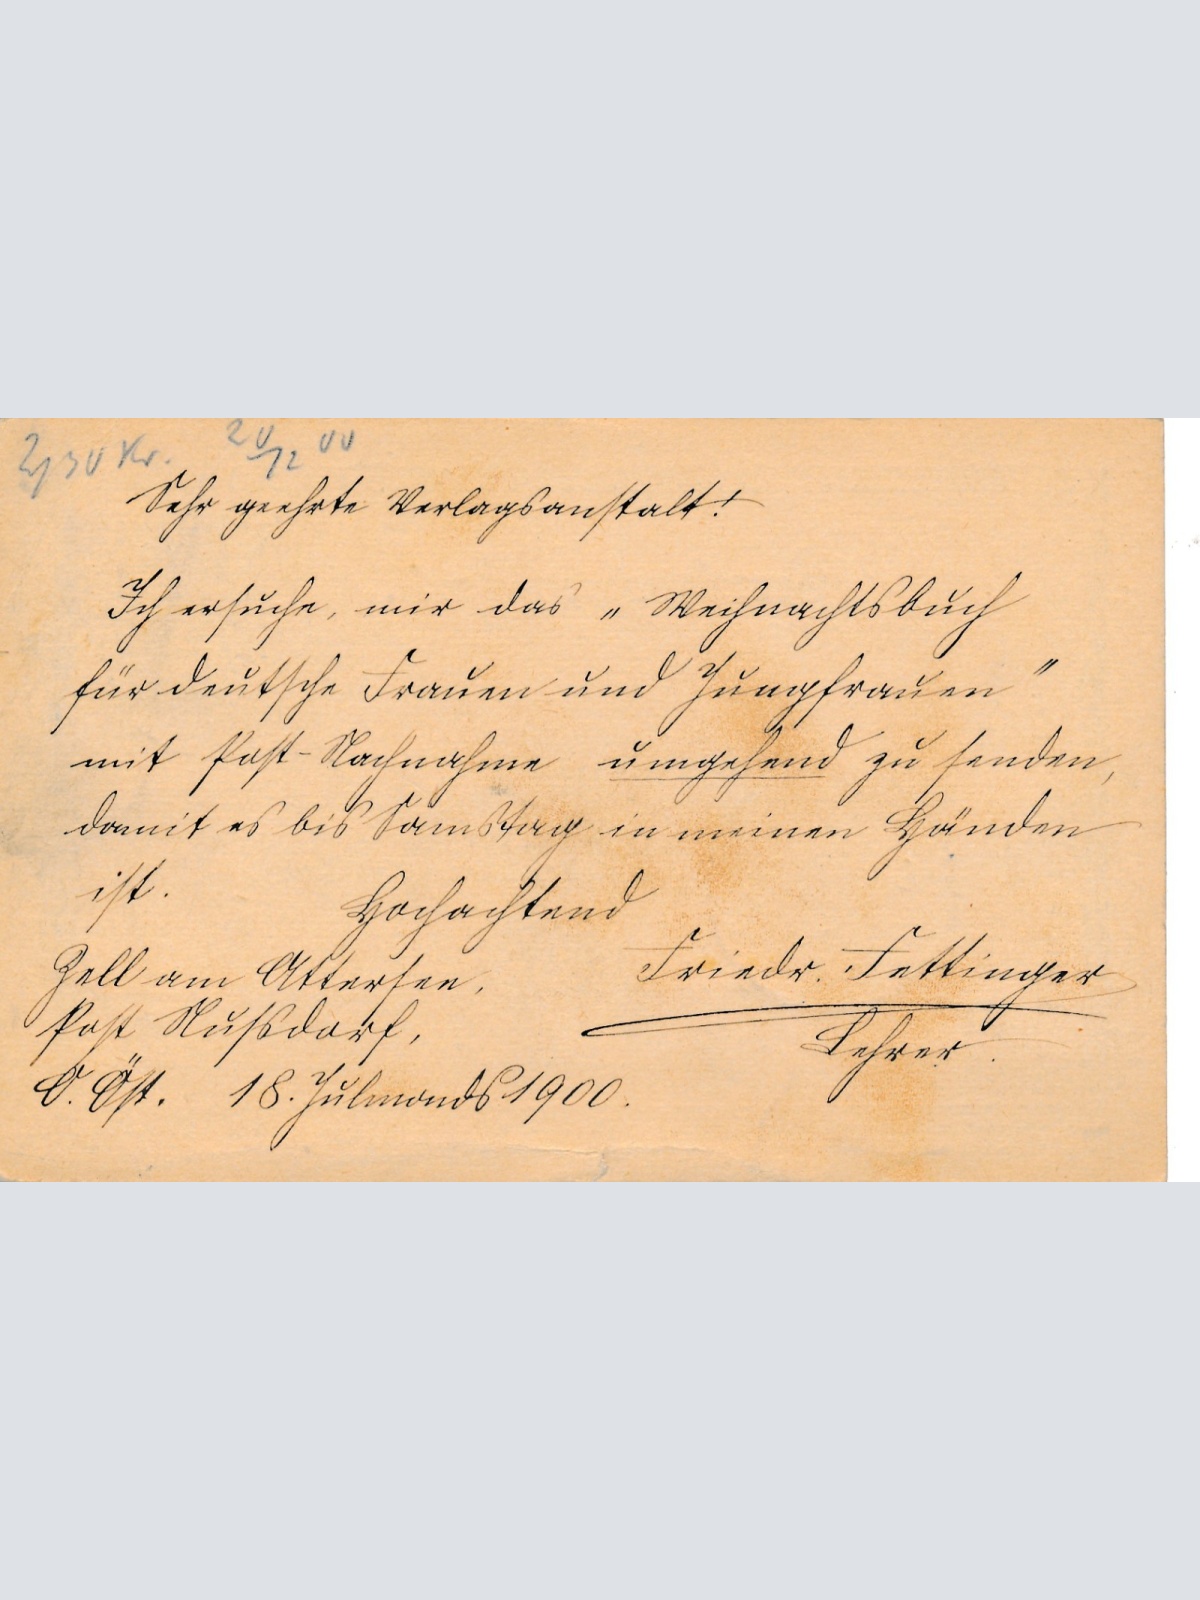 2,30 Kr. 20/12 00
Sehr geehrte Verlagsanstalt!
Ich ersuche, mir das „Weihnachtsbuch
für deutsche Frauen und Jungfrauen"
mit Post-Nachnahme umgehend zu senden,
damit es bis Samstag in meinen Händen
ist. Hochachtend
Zell am Attersee, Friedr. Fettinger
Post Nußdorf, Lehrer.
O. Öst. 18. Julmonds 1900.